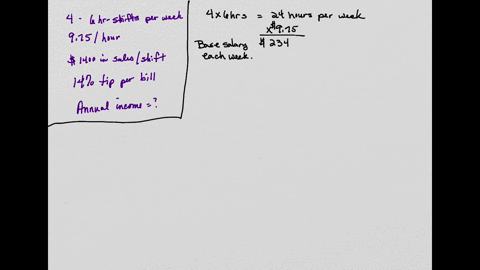 4 - 6 hr shifts per week
9.75 / hour
$1400 in sales / shift
14% tip per bill
Annual income = ?
4 x 6 hrs = 24 hours per week
x $9.75
Base salary each week. $ 234